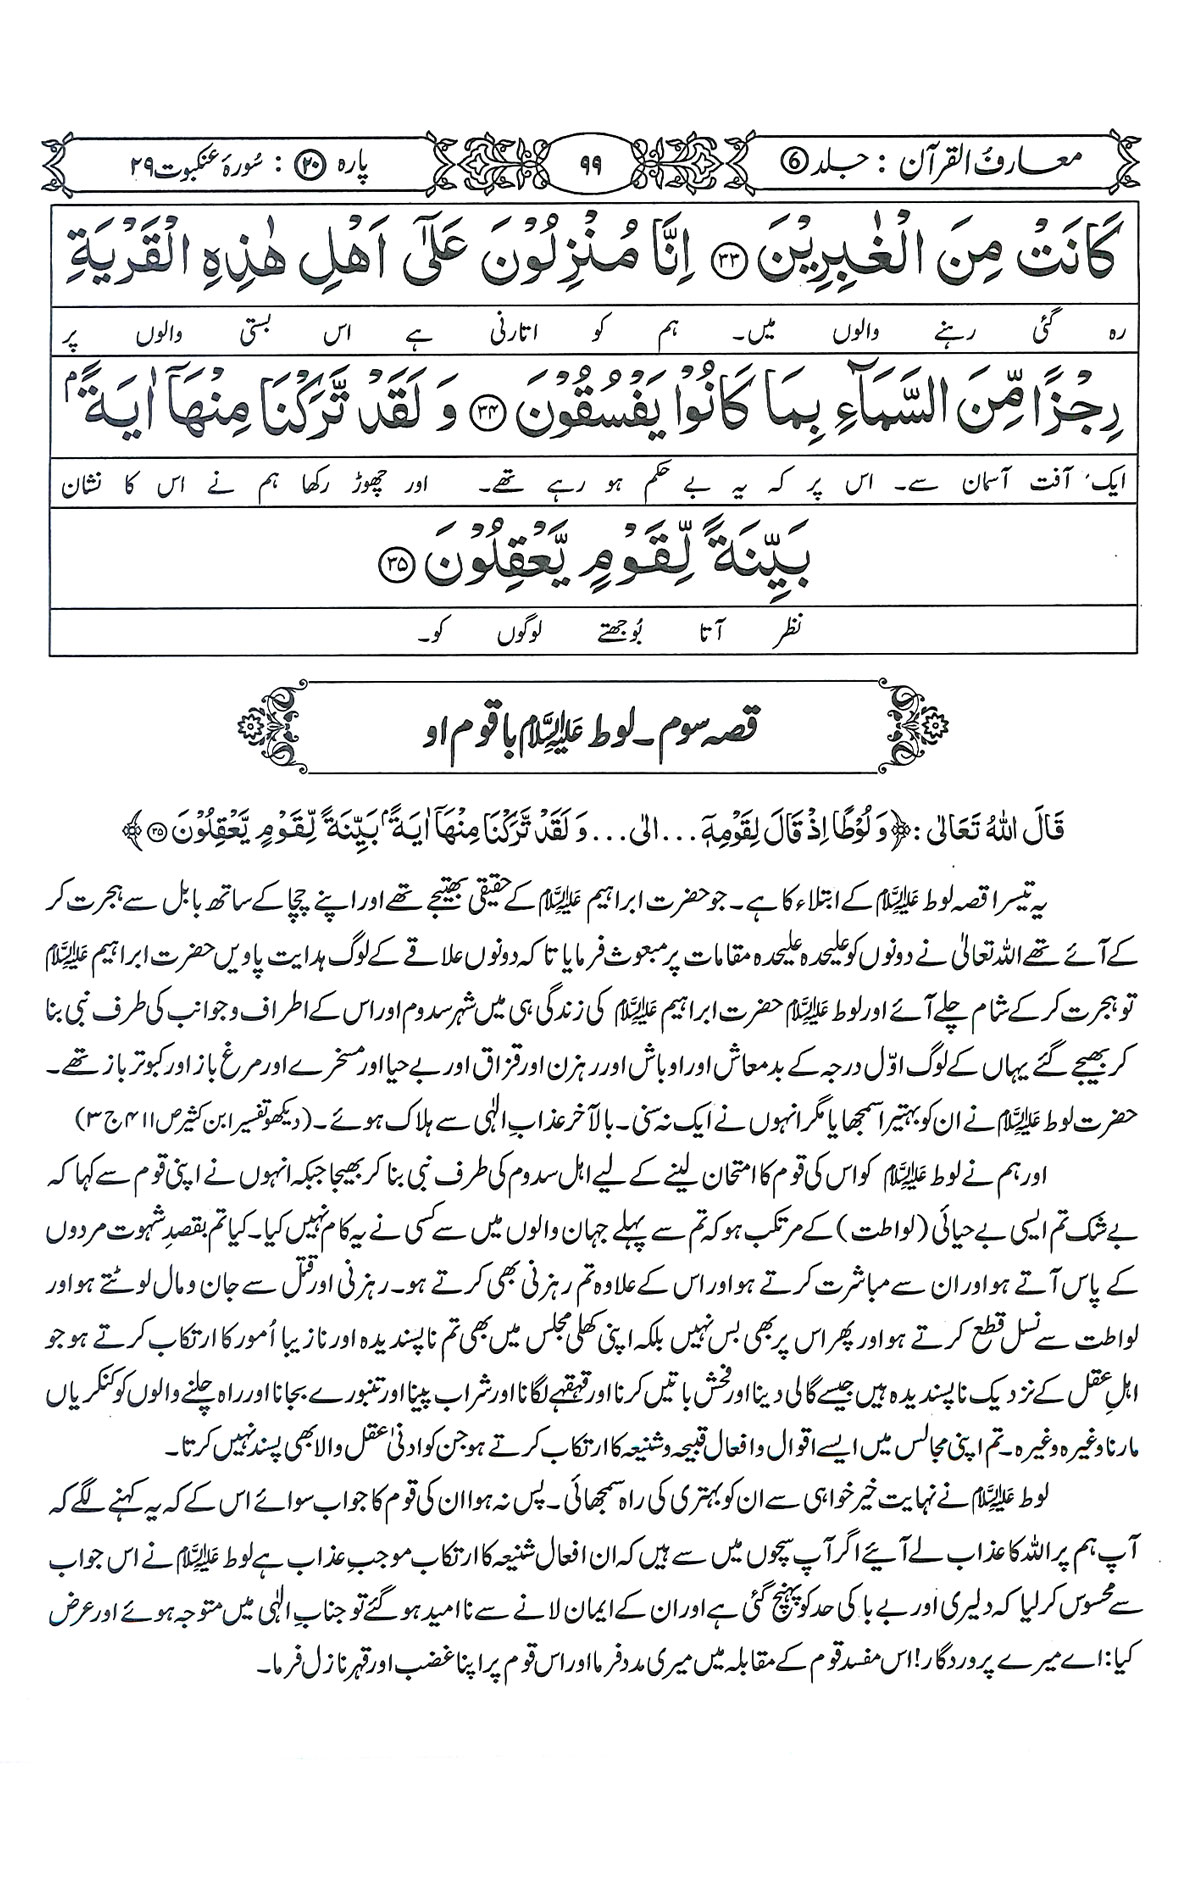 معارف القرآن : جلد ⑥
۹۹
پارہ ۲۰ : سُورۂ عنکبوت ۲۹
كَانَتْ مِنَ الْغٰبِرِيْنَ ۳۳ اِنَّا مُنْزِلُوْنَ عَلٰٓى اَهْلِ هٰذِهِ الْقَرْيَةِ
رہ گئی رہنے والوں میں۔ ہم کو اتارنی ہے اس بستی والوں پر
رِجْزًا مِّنَ السَّمَآءِ بِمَا كَانُوْا يَفْسُقُوْنَ ۳۴ وَ لَقَدْ تَّرَكْنَا مِنْهَآ اٰيَةًۢ
ایک آفت آسمان سے۔ اس پر کہ یہ بے حکم ہو رہے تھے۔ اور چھوڑ رکھا ہم نے اس کا نشان
بَيِّنَةً لِّقَوْمٍ يَّعْقِلُوْنَ ۳۵
نظر آتا بُوجھتے لوگوں کو۔
قصہ سوم۔ لوط علیہ السلام با قوم او
قَالَ اللهُ تَعَالٰى : ﴿وَ لُوْطًا اِذْ قَالَ لِقَوْمِهٖٓ ... الٰى ... وَ لَقَدْ تَّرَكْنَا مِنْهَآ اٰيَةًۢ بَيِّنَةً لِّقَوْمٍ يَّعْقِلُوْنَ ۳۵﴾
یہ تیسرا قصہ لوط علیہ السلام کے ابتلاء کا ہے۔ جو حضرت ابراہیم علیہ السلام کے حقیقی بھتیجے تھے اور اپنے چچا کے ساتھ بابل سے ہجرت کر
کے آئے تھے اللہ تعالیٰ نے دونوں کو علیحدہ علیحدہ مقامات پر مبعوث فرمایا تا کہ دونوں علاقے کے لوگ ہدایت پاویں حضرت ابراہیم علیہ السلام
تو ہجرت کر کے شام چلے آئے اور لوط علیہ السلام حضرت ابراہیم علیہ السلام کی زندگی ہی میں شہر سدوم اور اس کے اطراف و جوانب کی طرف نبی بنا
کر بھیجے گئے یہاں کے لوگ اوّل درجہ کے بدمعاش اور اوباش اور رہزن اور قزاق اور بے حیا اور مسخرے اور مرغ باز اور کبوتر باز تھے۔
حضرت لوط علیہ السلام نے ان کو بہتیرا سمجھایا مگر انہوں نے ایک نہ سنی۔ بالآخر عذابِ الٰہی سے ہلاک ہوئے۔ (دیکھو تفسیر ابن کثیر ص ۴۱۱ ج ۳)
اور ہم نے لوط علیہ السلام کو اس کی قوم کا امتحان لینے کے لیے اہل سدوم کی طرف نبی بنا کر بھیجا جبکہ انہوں نے اپنی قوم سے کہا کہ
بے شک تم ایسی بے حیائی (لواطت) کے مرتکب ہو کہ تم سے پہلے جہان والوں میں سے کسی نے یہ کام نہیں کیا۔ کیا تم بقصدِ شہوت مردوں
کے پاس آتے ہو اور ان سے مباشرت کرتے ہو اور اس کے علاوہ تم رہزنی بھی کرتے ہو۔ رہزنی اور قتل سے جان و مال لوٹتے ہو اور
لواطت سے نسل قطع کرتے ہو اور پھر اس پر بھی بس نہیں بلکہ اپنی کھلی مجلس میں بھی تم ناپسندیدہ اور نازیبا اُمور کا ارتکاب کرتے ہو جو
اہلِ عقل کے نزدیک ناپسندیدہ ہیں جیسے گالی دینا اور فحش باتیں کرنا اور قہقہے لگانا اور شراب پینا اور تنبورے بجانا اور راہ چلنے والوں کو کنکریاں
مارنا وغیرہ وغیرہ۔ تم اپنی مجالس میں ایسے اقوال و افعال قبیحہ و شنیعہ کا ارتکاب کرتے ہو جن کو ادنیٰ عقل والا بھی پسند نہیں کرتا۔
لوط علیہ السلام نے نہایت خیر خواہی سے ان کو بہتری کی راہ سمجھائی۔ پس نہ ہوا ان کی قوم کا جواب سوائے اس کے کہ یہ کہنے لگے کہ
آپ ہم پر اللہ کا عذاب لے آئیے اگر آپ سچوں میں سے ہیں کہ ان افعال شنیعہ کا ارتکاب موجبِ عذاب ہے لوط علیہ السلام نے اس جواب
سے محسوس کر لیا کہ دلیری اور بے باکی حد کو پہنچ گئی ہے اور ان کے ایمان لانے سے ناامید ہو گئے تو جنابِ الٰہی میں متوجہ ہوئے اور عرض
کیا: اے میرے پروردگار! اس مفسد قوم کے مقابلہ میں میری مدد فرما اور اس قوم پر اپنا غضب اور قہر نازل فرما۔